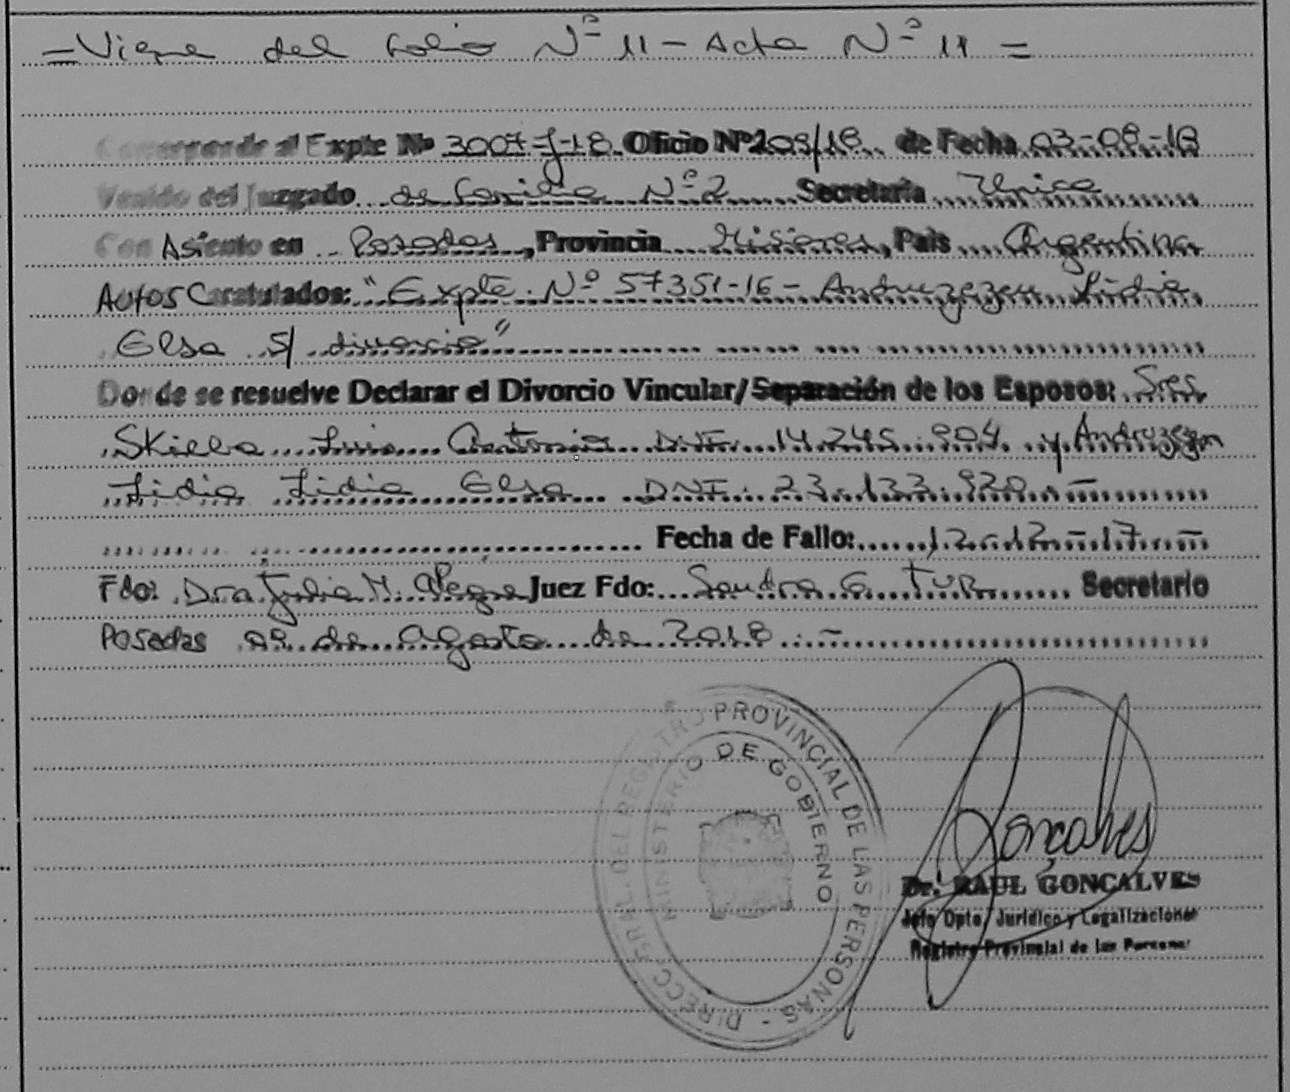 = Viene del folio Nº 11 - Acta Nº 11 =
Corresponde al Expte No 3007-J-18 Oficio Nº 203/18 de Fecha 03-08-18
Venido del Juzgado de Familia Nº 2 Secretaria Unica
Con Asiento en Posadas, Provincia Misiones, Pais Argentina
Autos Caratulados: "Expte. Nº 57351-16 - Andruzezen Lidia
Elsa s/ divorcio"
Donde se resuelve Declarar el Divorcio Vincular/Separación de los Esposos: Sres
Luis Antonio DNI. 14.245.904. y
Lidia Lidia Elsa DNI. 23.133.920. -
Fecha de Fallo: 12-12-17. -
Fdo: Dra Julia M. Alegre Juez Fdo: Sandra G. TUR Secretario
Posadas 09 de Agosto de 2018. -
DIRECC. GRAL. DEL REGISTRO PROVINCIAL DE LAS PERSONAS -
MINISTERIO DE GOBIERNO
Gonçalves
Dr. RAUL GONCALVES
Jefe Dpto. Jurídico y Legalizaciones
Registro Provincial de las Personas